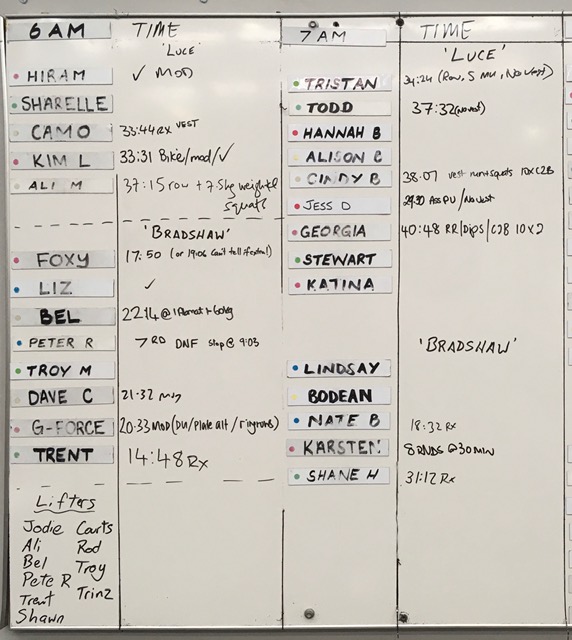 6 AM TIME
'LUCE'
HIRAM ✓ MOD
SHARELLE
CAMO 33:44 RX VEST
KIM L 33:31 Bike/mod/✓
ALI M 37:15 row + 7.5kg weighted
squats
'BRADSHAW'
FOXY 17:50 (or 19:06 can't tell
LIZ ✓
BEL 22:14 @
PETER R 7 RD DNF stop @ 9:03
TROY M
DAVE C 21:32
G-FORCE 20:33 MOD (DU/Plate alt / ring rows)
TRENT 14:48 Rx
Lifters
Jodie Courts
Ali Rod
Bel Troy
Pete R Trinz
Trent
Shawn
7 AM TIME
'LUCE'
TRISTAN 34:24 (Row, 5 MU, No Vest)
TODD 37:32 (No vest)
HANNAH B
ALISON C
CINDY B 38:07 vest run+squats 10xC2B
JESS D Ass PU / No Vest
GEORGIA 40:48 RR/Dips/C2B 10x2
STEWART
KATINA
'BRADSHAW'
LINDSAY
BODEAN
NATE B 18:32 Rx
KARSTEN 8 RNDS @ 30 MIN
SHANE H 31:12 Rx